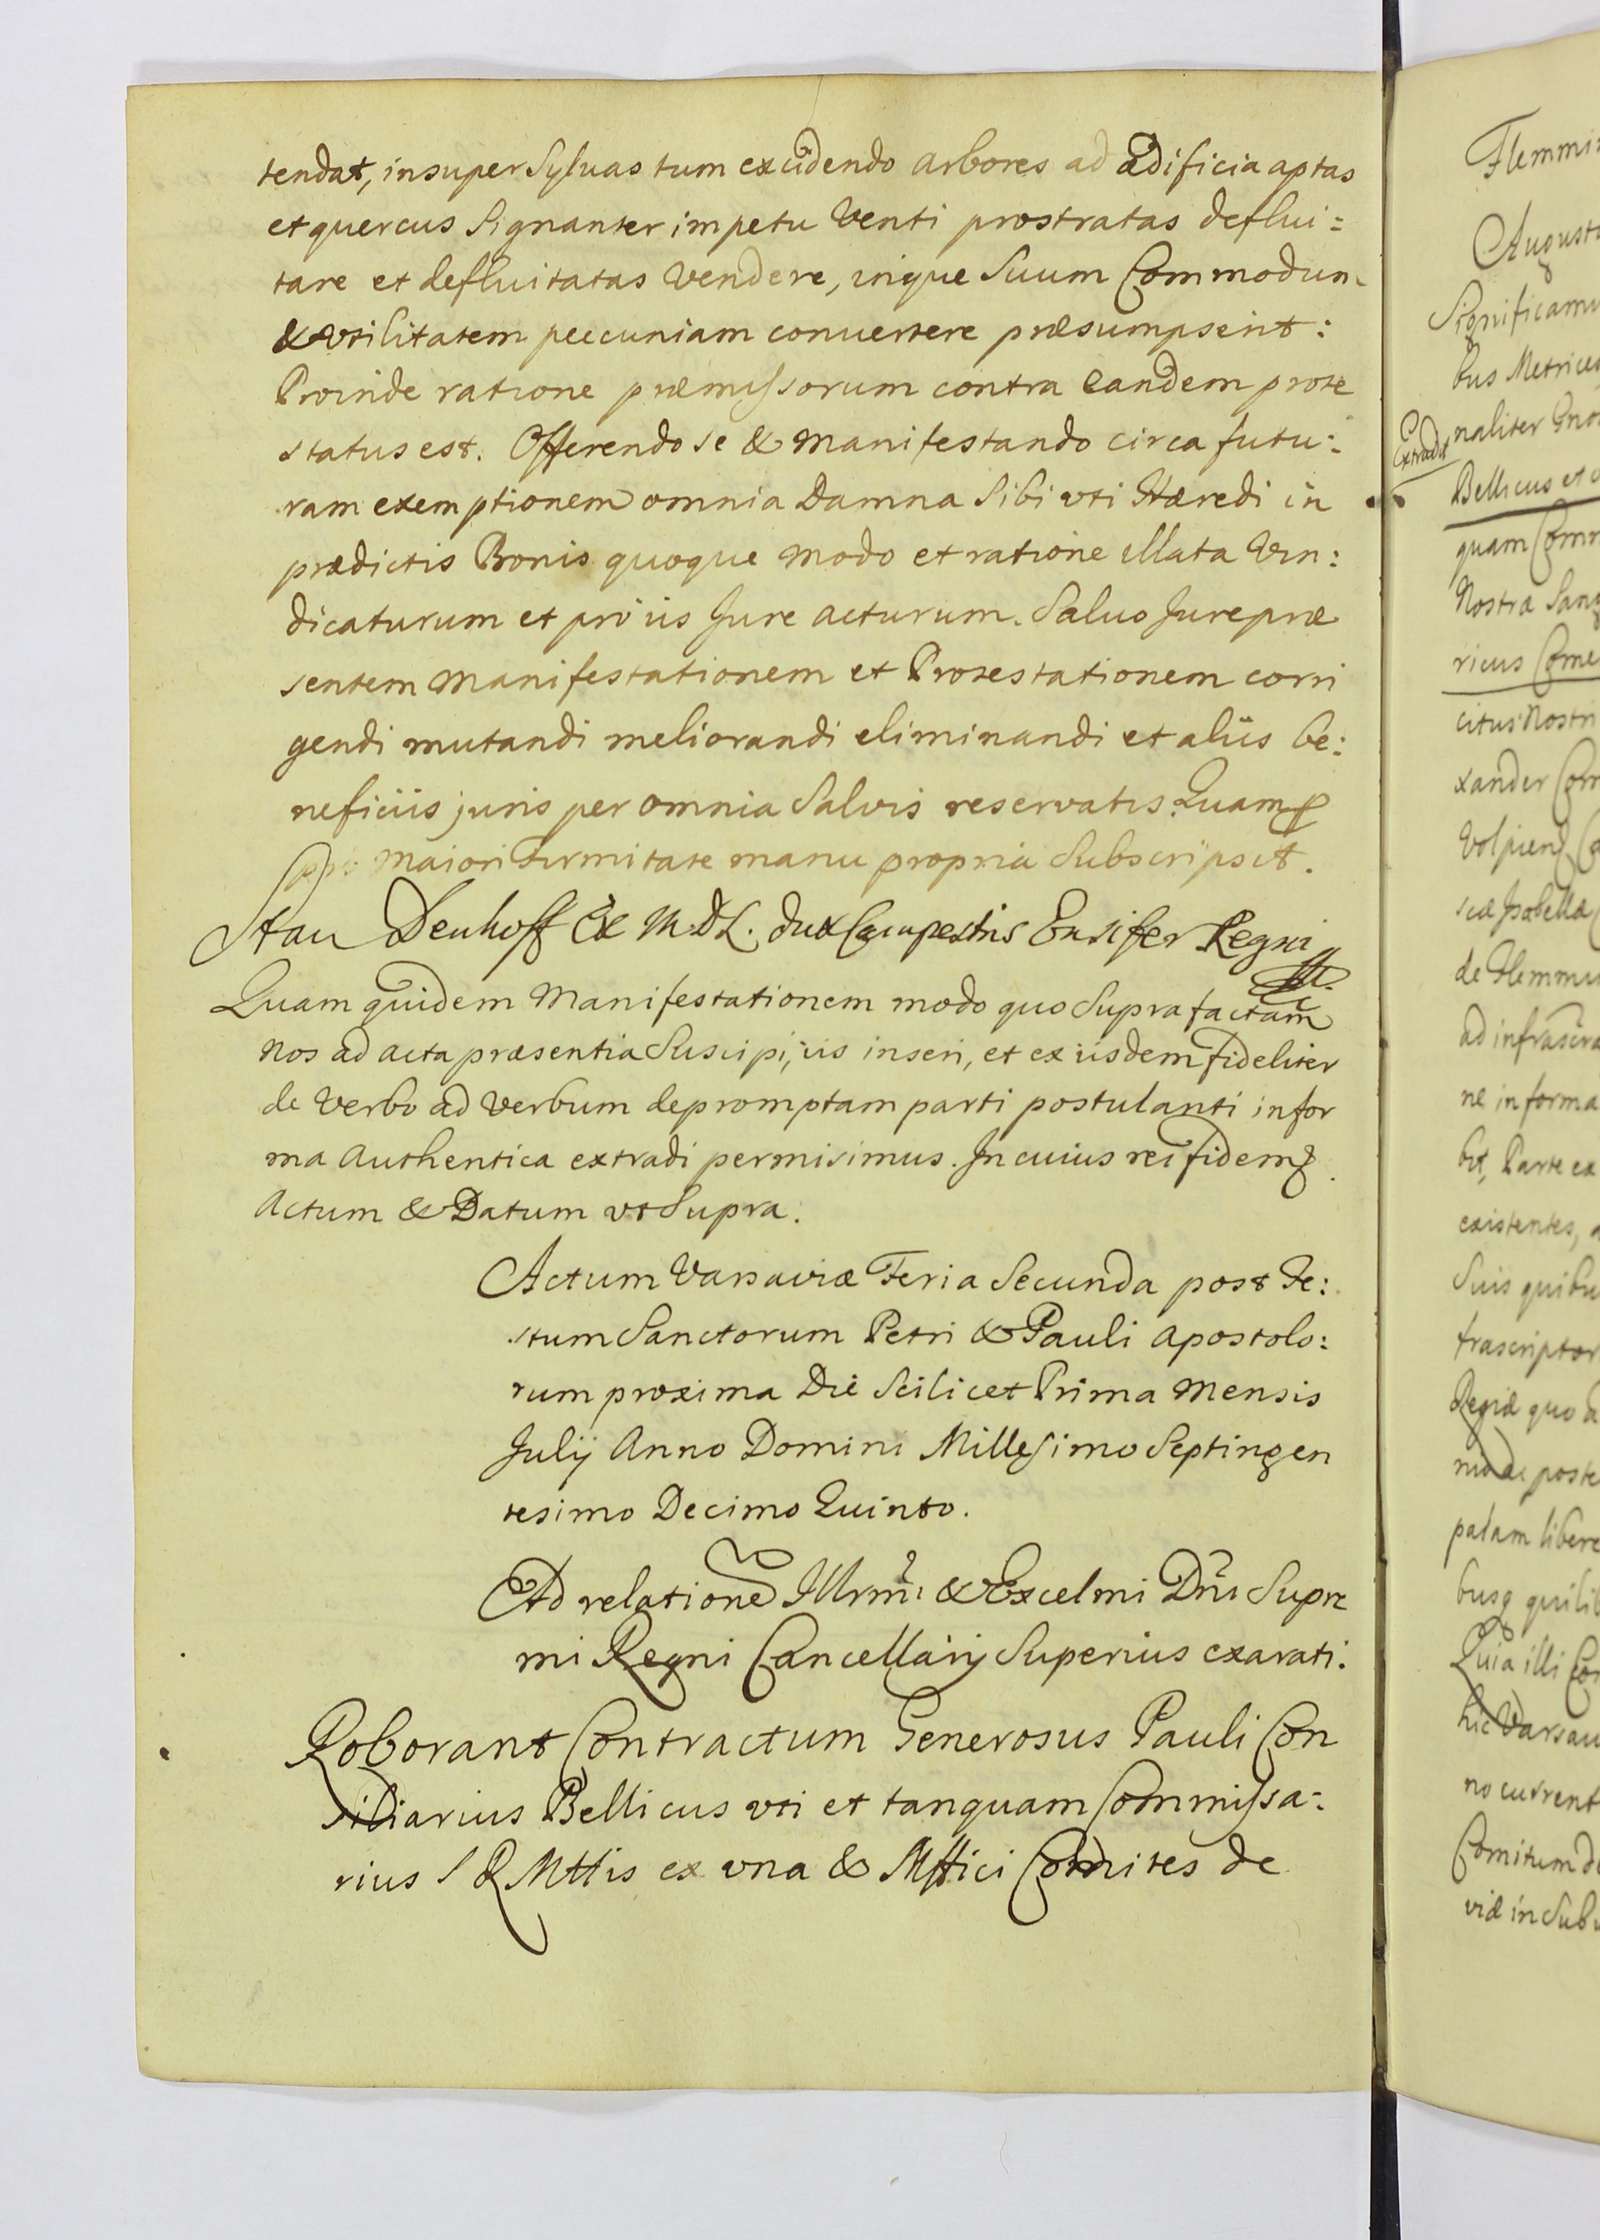 tendat, insuper Syluas tum excidendo arbores ad ædificia aptas
et quercus Signanter impetu Venti prostratas deflui=
tare et defluitatas Vendere, inque Suum Commodum
& vtilitatem peccuniam conuertere præsumpserit:
Proinde ratione præmissorum contra Eandem prote
status est. Offerendo se & Manifestando circa futu:
ram exemptionem omnia Damna Sibi vti Hæredi in
prædictis Bonis quoque modo et ratione illata Vin:
dicaturum et pro iis Jure acturum. Saluo Jure præ
sentem Manifestationem et Protestationem corri
gendi mutandi meliorandi eliminandi et aliis be:
neficiis juris per omnia Salvis reservatis. Quam
maiori firmitate manu propria Subscripsit.
Stan Denhoff Ex M.D.L. dux Campestris Ensifer Regni
Quam quidem Manifestationem modo quo Supra factam
Nos ad acta præsentia Suscipi, iis inseri, et ex iisdem fideliter
de Verbo ad Verbum depromptam parti postulanti in for
ma Authentica extradi permisimus. In cuius rei fidem
Actum & Datum vt Supra.
Actum Varsaviæ Feria Secunda post Fe:
stum Sanctorum Petri & Pauli Apostolo:
rum proxima Die Scilicet Prima Mensis
Julij Anno Domini Millesimo Septingen
tesimo Decimo Quinto.
Ad relationē Illrmi & Excelmi Dni Supre
mi Regni Cancellarij Superius exarati.
Roborant Contractum Generosus Pauli Con
siliarius Bellicus vti et tanquam Commissa:
rius S R Mttis ex vna & Mffici Comites de
Flemmi
August
Significamu
bus Metrices
Extradit
naliter Gno
Bellicus et
quam Comm
Nostræ Sanc
ricus Come
citus Nostri
xander Com
sciæ Isabellæ
de Flemmi
ad infrascr
ne in forma
bit, Parte ex
existentes,
Suis quibu
frascriptor
Regiæ quo
mode poste
palam libere
busq quilib
Quia illi Con
hic Varsau
no current
Comitum de
viæ in Subu